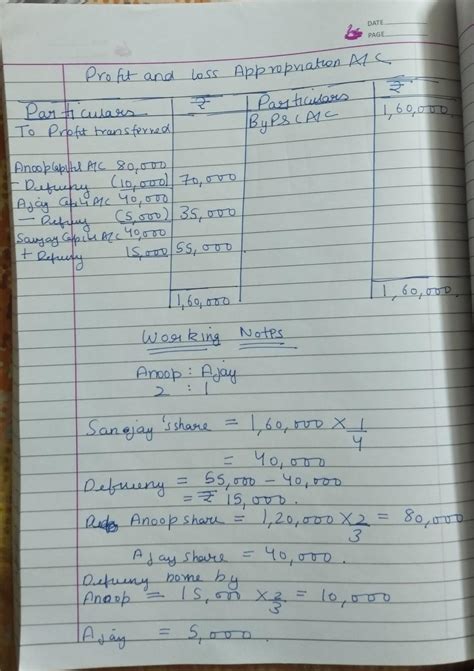 DATE
PAGE
Profit and Loss Appropriation A/C
Particulars ₹ Particulars ₹
To Profit transferred By P&L A/C 1,60,000
Anoop Capital A/C 80,000
- Defficiency (10,000) 70,000
Ajay Capital A/C 40,000
- Defficiency (5,000) 35,000
Sanjay Capital A/C 40,000
+ Defficiency 15,000 55,000
1,60,000 1,60,000
Working Notes
Anoop : Ajay
2 : 1
Sanajay's share = 1,60,000 × 1/4
= 40,000
= 55,000 - 40,000
= ₹ 15,000.
Anoop share = 1,20,000 × 2/3 = 80,000
Ajay share = 40,000.
borne by
Anoop = 15,000 × 2/3 = 10,000
Ajay = 5,000.